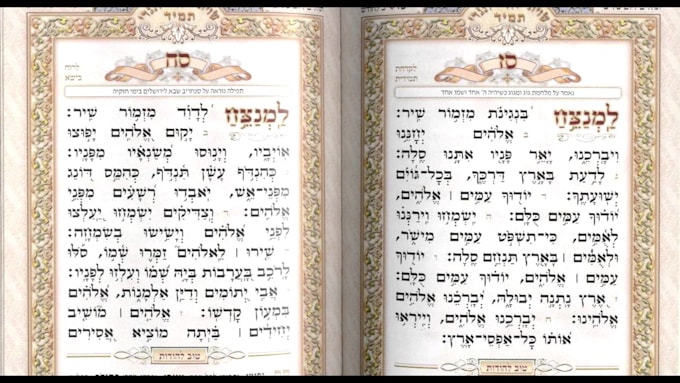 תמיד
סז
לקדחת
תמידית
נאמר על מלחמת גוג ומגוג כשיהיה ה' אחד ושמו אחד
לַמְנַצֵּחַ בִּנְגִינֹת מִזְמוֹר שִׁיר:
ב אֱלֹהִים יְחָנֵּנוּ
וִיבָרְכֵנוּ, יָאֵר פָּנָיו אִתָּנוּ סֶלָה:
ג לָדַעַת בָּאָרֶץ דַּרְכֶּךָ, בְּכָל-גּוֹיִם
יְשׁוּעָתֶךָ: ד יוֹדוּךָ עַמִּים | אֱלֹהִים,
יוֹדוּךָ עַמִּים כֻּלָּם: ה יִשְׂמְחוּ וִירַנְּנוּ
לְאֻמִּים, כִּי-תִשְׁפֹּט עַמִּים מִישֹׁר,
וּלְאֻמִּים | בָּאָרֶץ תַּנְחֵם סֶלָה: ו יוֹדוּךָ
עַמִּים | אֱלֹהִים, יוֹדוּךָ עַמִּים כֻּלָּם:
ז אֶרֶץ נָתְנָה יְבוּלָהּ, יְבָרְכֵנוּ אֱלֹהִים
אֱלֹהֵינוּ: ח יְבָרְכֵנוּ אֱלֹהִים, וְיִירְאוּ
אוֹתוֹ כָּל-אַפְסֵי-אָרֶץ:
טוב להודות
תמיד
סח
לרוח
בישא
תפילה נוראה על סנחריב שבא לירושלים בימי חזקיה
לַמְנַצֵּחַ לְדָוִד מִזְמוֹר שִׁיר:
ב יָקוּם אֱלֹהִים יָפוּצוּ
אוֹיְבָיו, וְיָנוּסוּ מְשַׂנְאָיו מִפָּנָיו:
ג כְּהִנְדֹּף עָשָׁן תִּנְדֹּף, כְּהִמֵּס דּוֹנַג
מִפְּנֵי-אֵשׁ, יֹאבְדוּ רְשָׁעִים מִפְּנֵי
אֱלֹהִים: ד וְצַדִּיקִים יִשְׂמְחוּ יַעַלְצוּ
לִפְנֵי אֱלֹהִים וְיָשִׂישׂוּ בְשִׂמְחָה:
ה שִׁירוּ | לֵאלֹהִים זַמְּרוּ שְׁמוֹ, סֹלּוּ
לָרֹכֵב בָּעֲרָבוֹת בְּיָהּ שְׁמוֹ וְעִלְזוּ לְפָנָיו:
ו אֲבִי יְתוֹמִים וְדַיַּן אַלְמָנוֹת, אֱלֹהִים
בִּמְעוֹן קָדְשׁוֹ: ז אֱלֹהִים | מוֹשִׁיב
יְחִידִים | בַּיְתָה מוֹצִיא אֲסִירִים
טוב להודות